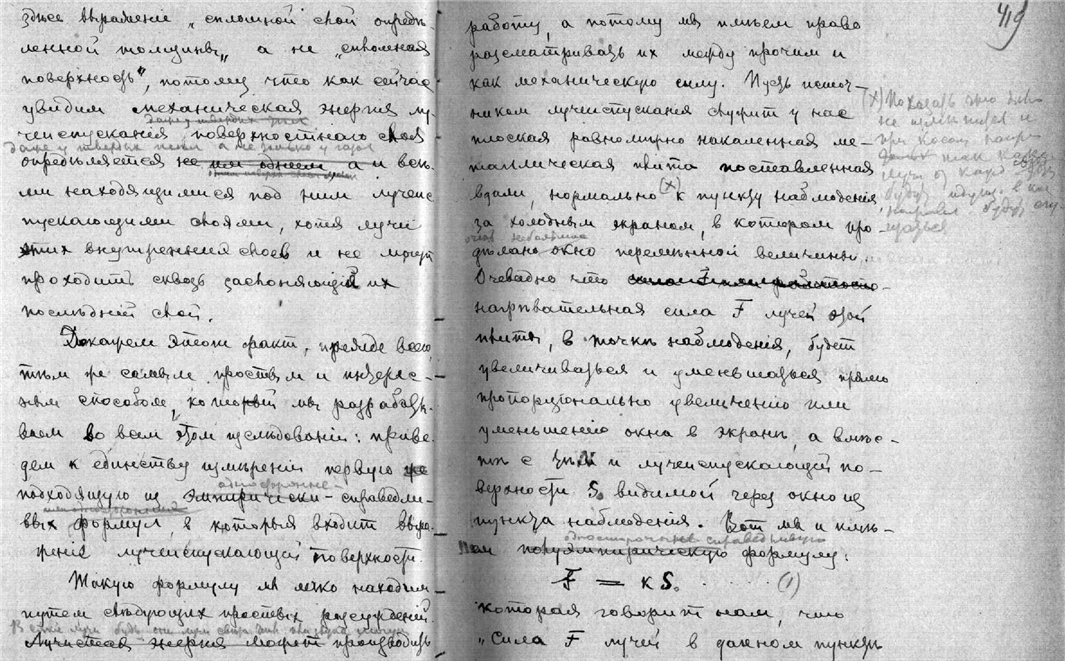 здѣсь выраженіе „сплошной слой опредѣ
ленной толщины„ а не „сплошная
поверхность", потому что какъ сейчас
увидим механическая энергия лу-
чеиспускания поверхностнаго слоя
даже у твердых тѣл а не только у газов
опредѣляется не им однем а и всѣ-
ми находящимися под ним лучеис
пускающими слоями, хотя лучи
этих внутренних слоев и не могут
проходить сквозь заслоняющій их
послѣдній слой.
Докажем этот факт, прежде всего,
тѣм же самым простым и интерес-
ным способом, который мы разрабаты-
ваем во всем этом изслѣдованіи: приве-
дем к единству измѣреній первую же
подходящую из эмпирически-справедли-
односторонне-
вых формул, в которыя входит выра-
женіе лучеиспускающей поверхности.
Такую формулу мы легко находим
путем слѣдующих простых разсуждений
Лучистая энергия может производить
419
работу, а потому мы имѣем право
разсматривать их между прочим и
как механическую силу. Пусть источ-
ником лучеиспускания служит у нас
плоская равномѣрно накаленная ме-
таллическая плита поставленная
вдали, нормально (x) к пункту наблюденія
за холодным экраном, в котором про-
дѣлано окно перемѣнной величины.
Очевидно что
нагрѣвательная сила F лучей этой
плиты, в точкѣ наблюденія, будет
увеличиваться и уменьшаться прямо
пропорціонально увеличению или
уменьшению окна в экранѣ, а вмѣс-
тѣ с тѣм и лучеиспускающей по-
верхности S₀ видимой через окно из
пункта наблюдения. Вот мы и имѣ-
одностороннее справедливую
ем полуэмпирическую формулу:
F = kS₀ ...... (1)
которая говорит нам, что
„Сила F лучей в данном пунктѣ
(x) Показать что